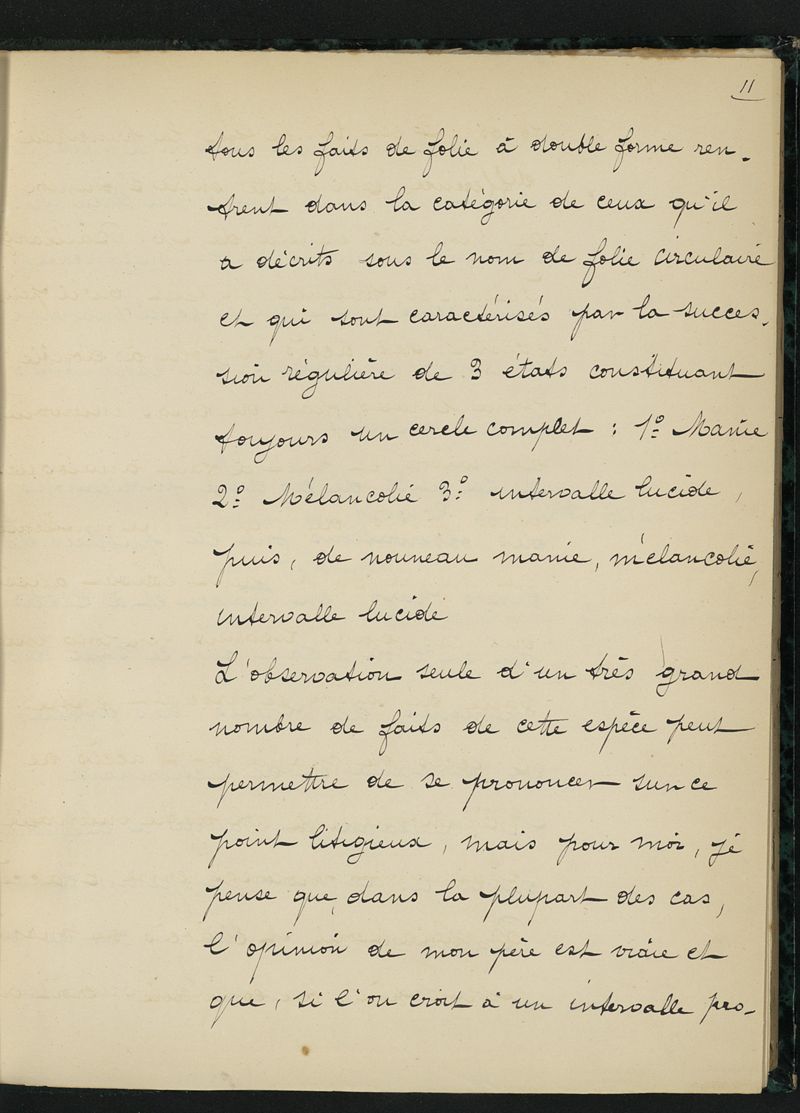 11
tous les faits de folie à double forme ren-
trent dans la catégorie de ceux qu'il
a décrits sous le nom de folie circulaire
et qui sont caractérisés par la succes-
sion régulière de 3 états constituant
toujours un cercle complet : 1º Manie
2º Mélancolie 3º intervalle lucide,
puis, de nouveau manie, mélancolie,
intervalle lucide
L'observation seule d'un très grand
nombre de faits de cette espèce peut
permettre de se prononcer sur ce
point litigieux, mais pour moi, je
pense que, dans la plupart des cas,
l'opinion de mon père est vraie et
que, si l'on croit à un intervalle pro-